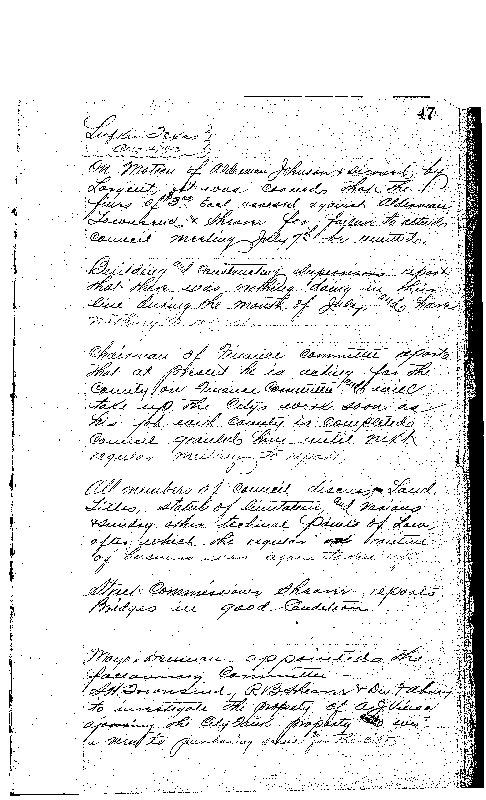 47
Lufkin Texas
On Motion of Alderman Johnson & second by
it was carried that the
fines of $3.00 Each assessed against Aldermen
Townsend & Shearn for failure to attend
council meeting July 7th be remitted.
Building and constructing supervisor report
that there was nothing doing in their
line during the month of July, and have
nothing to report
Chairman of Finance committee reports
that at present he is acting for the
County on Finance Committee and will
take up the City's work soon as
his job with county is completed
Council granted him until next
regular meeting to report
All members of council discuss Land
Titles, statute of limitation, and various
& sunday other technical Points of Law
after which the regular routine
of business was again taken up
Street Commissioner Shearn reports
Bridges in good Condition
Mayor appointed the
following Committee
Townsend, R B Shearn &
to investigate the property of
adjoining the City property
a view to purchasing same for the city